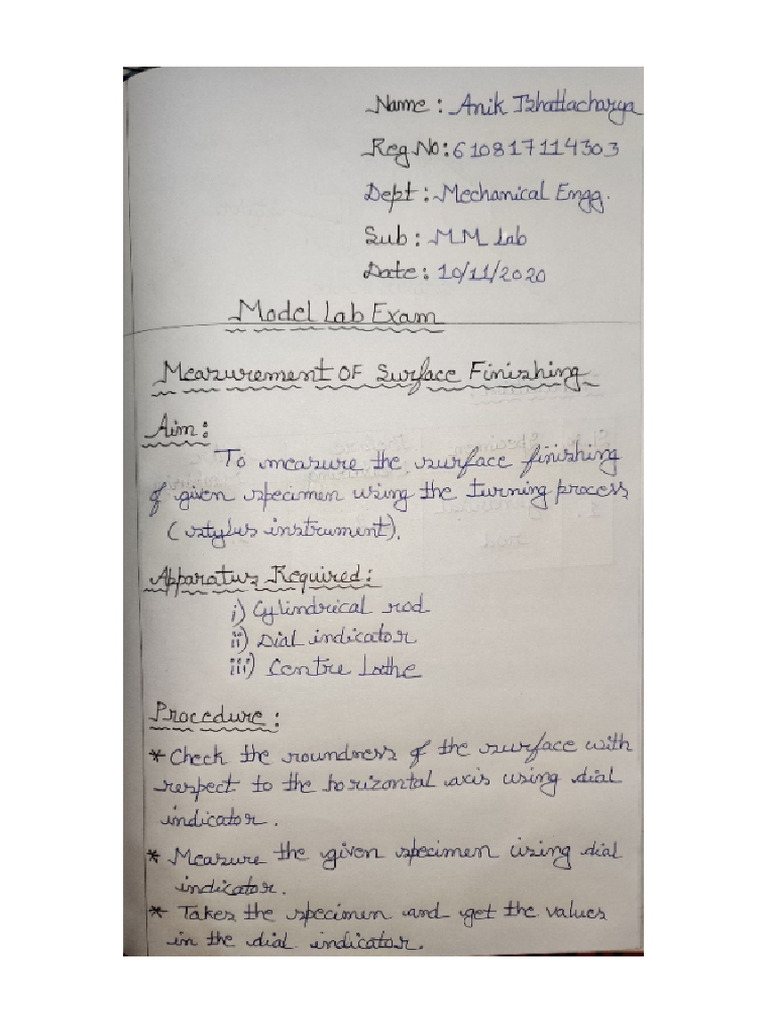 Name : Anik Bhattacharya
Reg No: 610817114303
Dept : Mechanical Engg.
Sub : MM Lab
Date : 10/11/2020
Model Lab Exam
Measurement OF Surface Finishing
Aim :
To measure the surface finishing
of given specimen using the turning process
(stylus instrument).
Apparatus Required :
i) Cylindrical rod
ii) Dial indicator
iii) Centre Lathe
Procedure :
* Check the roundness of the surface with
respect to the horizontal axis using dial
indicator.
* Measure the given specimen using dial
indicator.
* Takes the specimen and get the values
in the dial indicator.